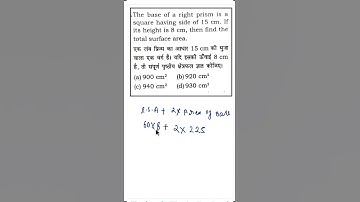 The base of a right prism is a
square having side of 15 cm. If
its height is 8 cm, then find the
total surface area.
एक लंब प्रिज्म का आधार 15 cm की भुजा
वाला एक वर्ग है। यदि इसकी ऊँचाई 8 cm
है, तो संपूर्ण पृष्ठीय क्षेत्रफल ज्ञात कीजिए।
(a) 900 cm² (b) 920 cm²
(c) 940 cm² (d) 930 cm²
L.S.A + 2x Area of Base
60x8 + 2 x 225